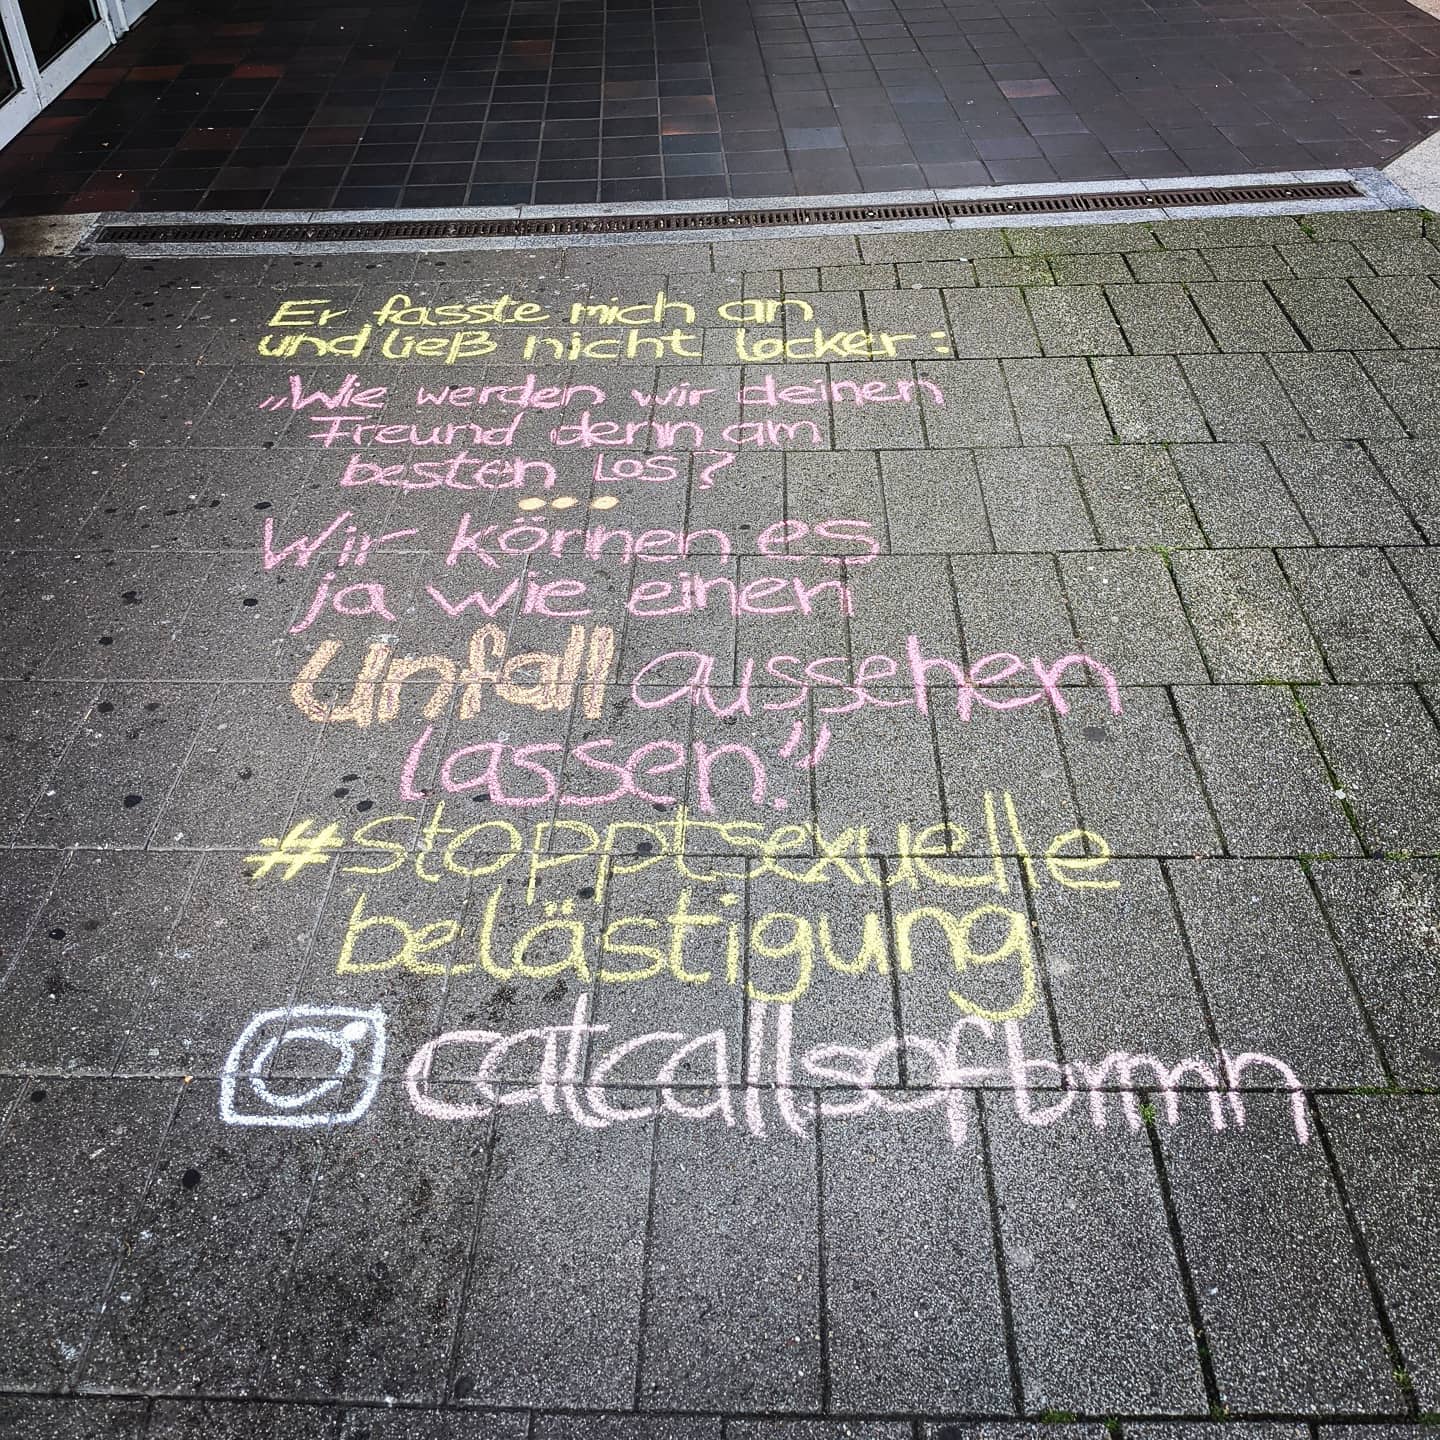 Er fasste mich an
und ließ nicht locker:
„Wie werden wir deinen
Freund denn am
besten los?
...
Wir können es
ja wie einen
Unfall aussehen
lassen."
#stopptsexuelle
belästigung
catcallsofbrmn